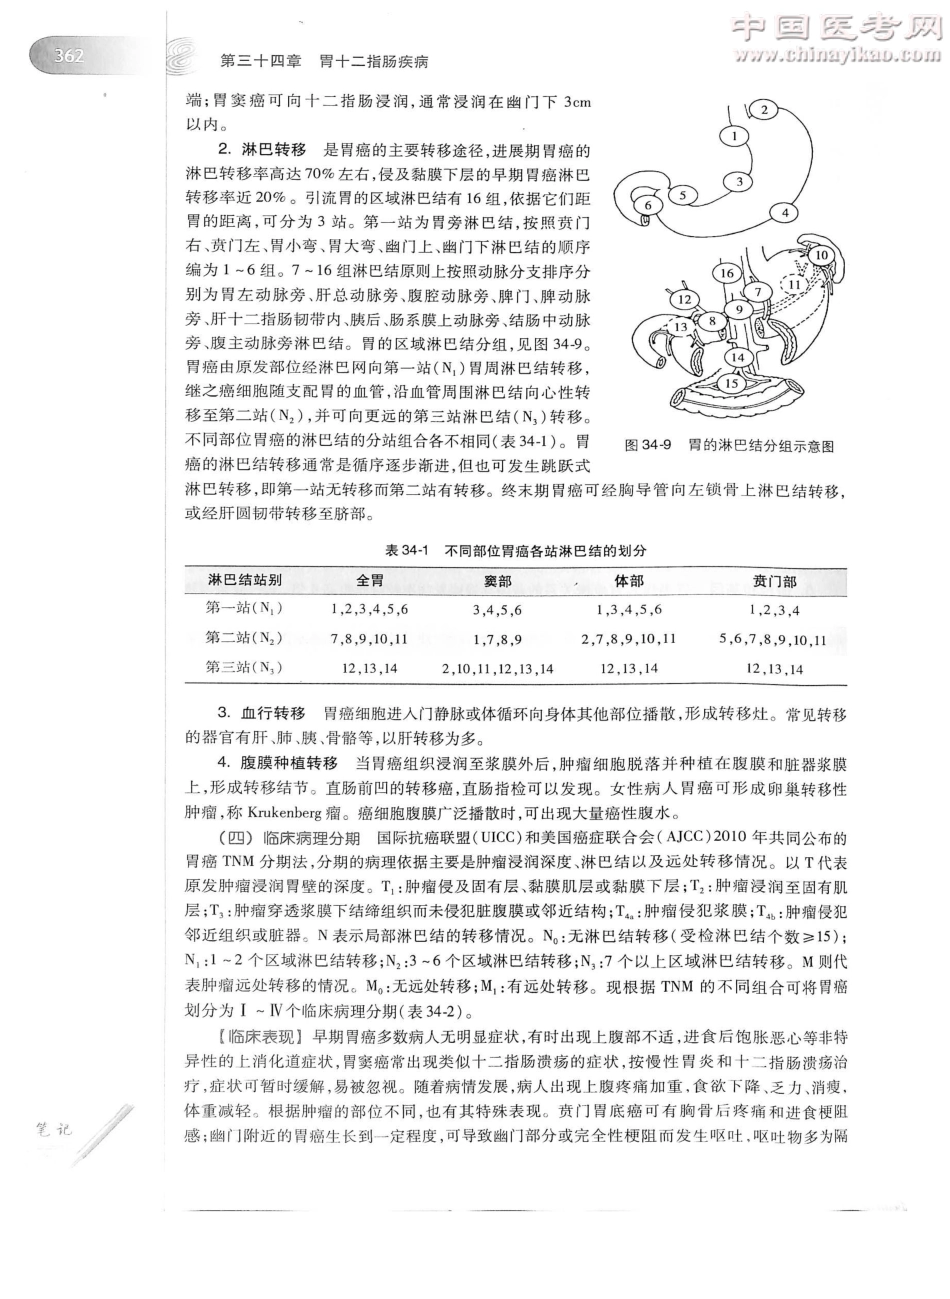 中国医考网
www.chinayikao.com
362
第三十四章 胃十二指肠疾病
端;胃窦癌可向十二指肠浸润,通常浸润在幽门下 3cm
以内。
2. 淋巴转移 是胃癌的主要转移途径,进展期胃癌的
淋巴转移率高达 70% 左右,侵及黏膜下层的早期胃癌淋巴
转移率近 20%。引流胃的区域淋巴结有 16 组,依据它们距
胃的距离,可分为 3 站。第一站为胃旁淋巴结,按照贲门
右、贲门左、胃小弯、胃大弯、幽门上、幽门下淋巴结的顺序
编为 1~6 组。7~16 组淋巴结原则上按照动脉分支排序分
别为胃左动脉旁、肝总动脉旁、腹腔动脉旁、脾门、脾动脉
旁、肝十二指肠韧带内、胰后、肠系膜上动脉旁、结肠中动脉
旁、腹主动脉旁淋巴结。胃的区域淋巴结分组,见图 34-9。
胃癌由原发部位经淋巴网向第一站(N₁)胃周淋巴结转移,
继之癌细胞随支配胃的血管,沿血管周围淋巴结向心性转
移至第二站(N₂),并可向更远的第三站淋巴结(N₃)转移。
不同部位胃癌的淋巴结的分站组合各不相同(表 34-1)。胃
癌的淋巴结转移通常是循序逐步渐进,但也可发生跳跃式
淋巴转移,即第一站无转移而第二站有转移。终末期胃癌可经胸导管向左锁骨上淋巴结转移,
或经肝圆韧带转移至脐部。
1
2
3
4
5
6
10
16
11
7
12
9
8
13
14
15
图 34-9 胃的淋巴结分组示意图
表 34-1 不同部位胃癌各站淋巴结的划分
淋巴结站别 全胃 窦部 体部 贲门部
第一站(N₁) 1,2,3,4,5,6 3,4,5,6 1,3,4,5,6 1,2,3,4
第二站(N₂) 7,8,9,10,11 1,7,8,9 2,7,8,9,10,11 5,6,7,8,9,10,11
第三站(N₃) 12,13,14 2,10,11,12,13,14 12,13,14 12,13,14
3. 血行转移 胃癌细胞进入门静脉或体循环向身体其他部位播散,形成转移灶。常见转移
的器官有肝、肺、胰、骨骼等,以肝转移为多。
4. 腹膜种植转移 当胃癌组织浸润至浆膜外后,肿瘤细胞脱落并种植在腹膜和脏器浆膜
上,形成转移结节。直肠前凹的转移癌,直肠指检可以发现。女性病人胃癌可形成卵巢转移性
肿瘤,称 Krukenberg 瘤。癌细胞腹膜广泛播散时,可出现大量癌性腹水。
(四) 临床病理分期 国际抗癌联盟(UICC)和美国癌症联合会(AJCC)2010 年共同公布的
胃癌 TNM 分期法,分期的病理依据主要是肿瘤浸润深度、淋巴结以及远处转移情况。以 T 代表
原发肿瘤浸润胃壁的深度。T₁:肿瘤侵及固有层、黏膜肌层或黏膜下层;T₂:肿瘤浸润至固有肌
层;T₃:肿瘤穿透浆膜下结缔组织而未侵犯脏腹膜或邻近结构;T₄ₐ:肿瘤侵犯浆膜;T₄b:肿瘤侵犯
邻近组织或脏器。N 表示局部淋巴结的转移情况。N₀:无淋巴结转移(受检淋巴结个数≥15);
N₁:1~2 个区域淋巴结转移;N₂:3~6 个区域淋巴结转移;N₃:7 个以上区域淋巴结转移。M 则代
表肿瘤远处转移的情况。M₀:无远处转移;M₁:有远处转移。现根据 TNM 的不同组合可将胃癌
划分为Ⅰ~Ⅳ个临床病理分期(表 34-2)。
【临床表现】 早期胃癌多数病人无明显症状,有时出现上腹部不适,进食后饱胀恶心等非特
异性的上消化道症状,胃窦癌常出现类似十二指肠溃疡的症状,按慢性胃炎和十二指肠溃疡治
疗,症状可暂时缓解,易被忽视。随着病情发展,病人出现上腹疼痛加重,食欲下降、乏力、消瘦,
体重减轻。根据肿瘤的部位不同,也有其特殊表现。贲门胃底癌可有胸骨后疼痛和进食梗阻
感;幽门附近的胃癌生长到一定程度,可导致幽门部分或完全性梗阻而发生呕吐,呕吐物多为隔
笔记